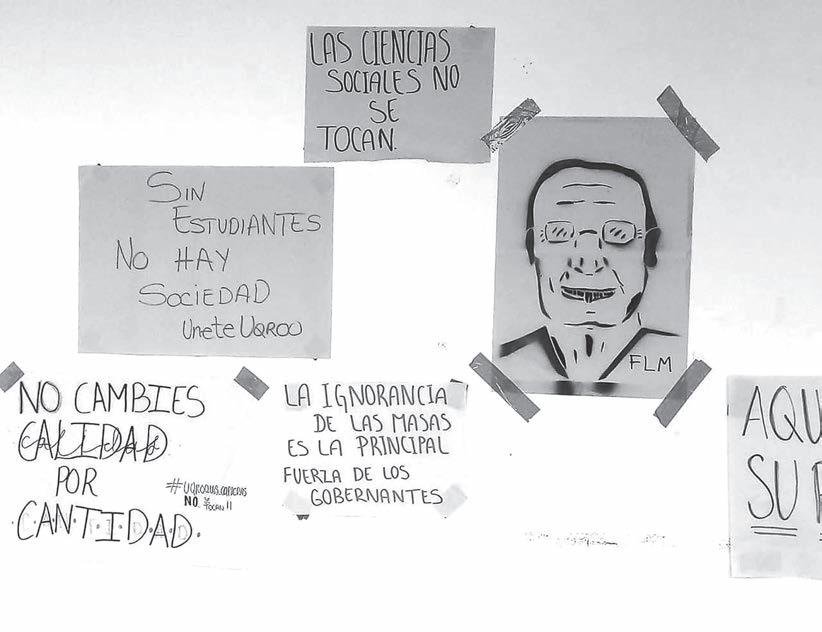 LAS CIENCIAS
SOCIALES NO
SE
TOCAN.
SIN
ESTUDIANTES
NO HAY
SOCIEDAD
Unete UQROO
FLM
NO CAMBIES
CALIDAD
POR
CANTIDAD.
NO SE
TOCAN!!
LA IGNORANCIA
DE LAS MASAS
ES LA PRINCIPAL
FUERZA DE LOS
GOBERNANTES
AQU
SU